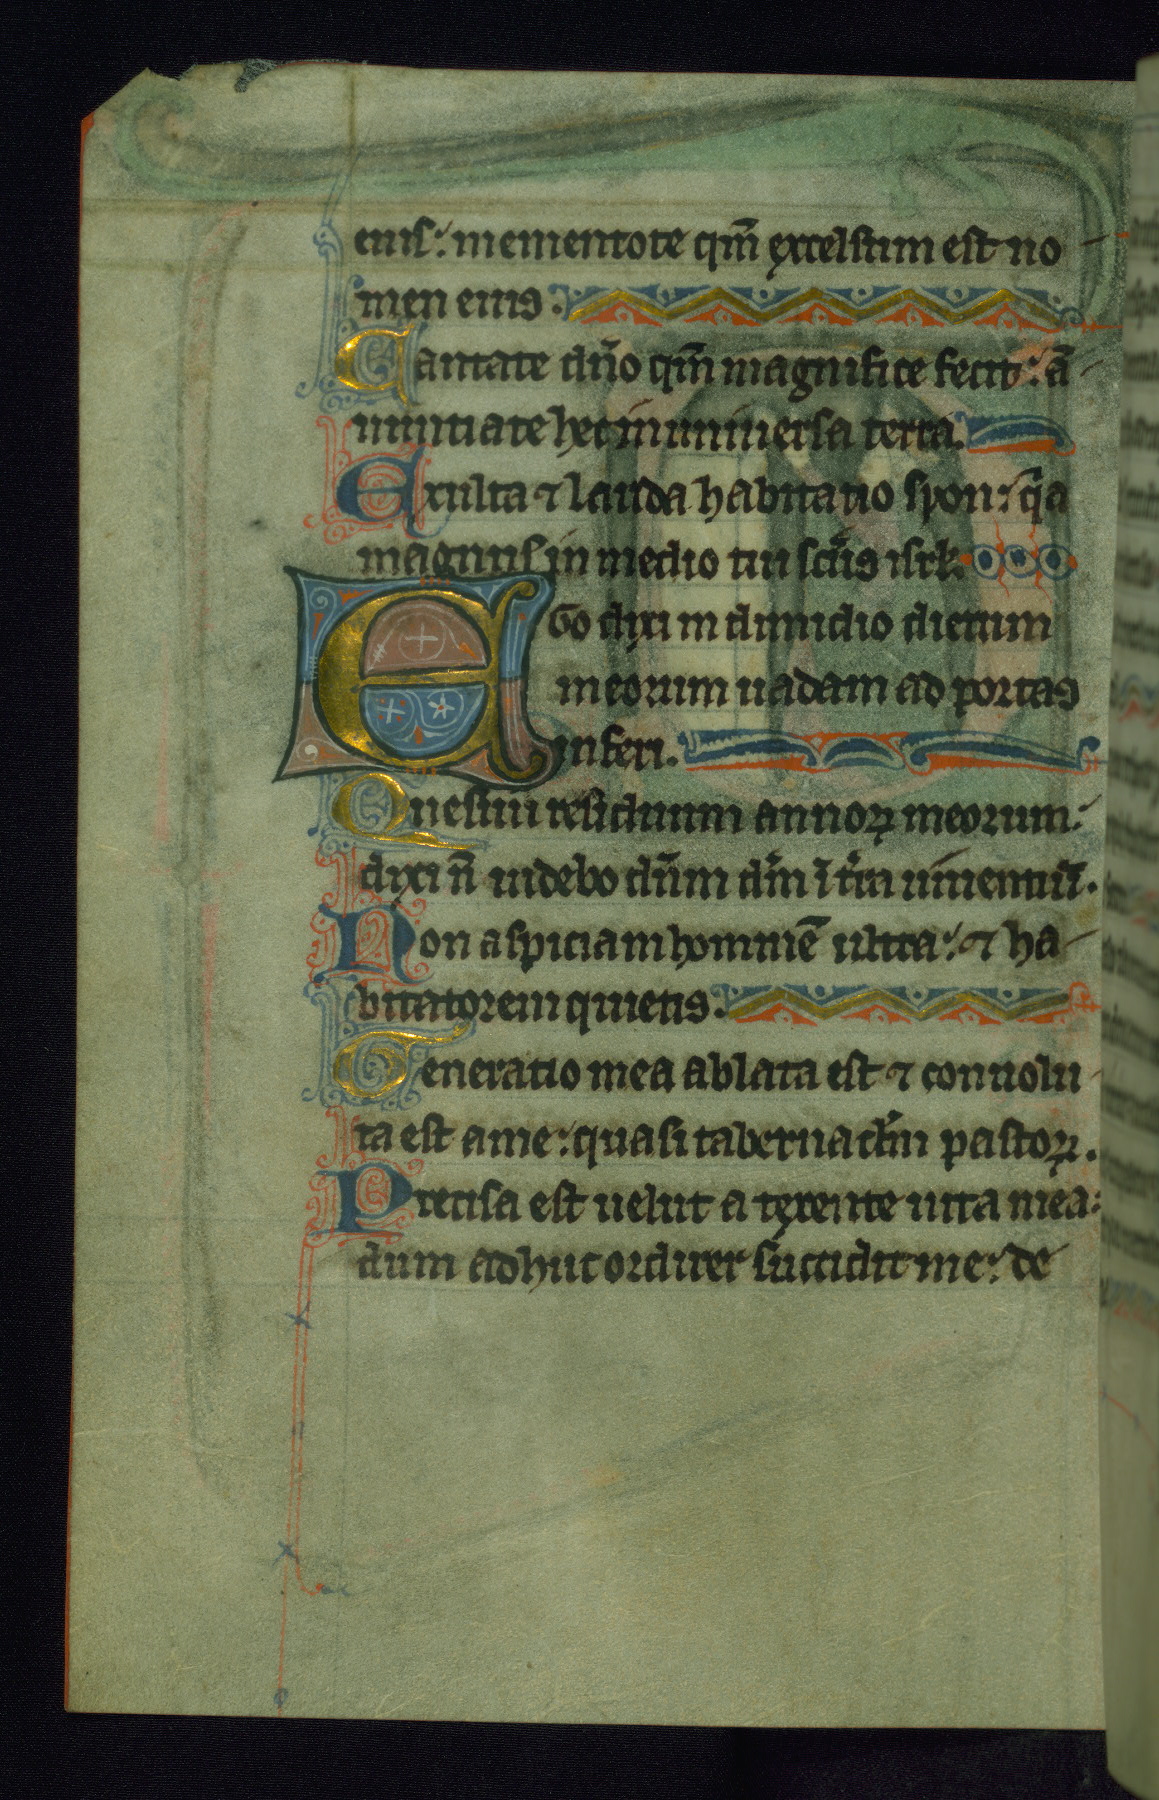 eius: mementote qm̄ excelsum est no
men eius.
Cantate dn̄o qm̄ magnifice fecit: ā
nuntiate hec in uniuersa terra.
Exulta ⁊ lauda habitatio syon: q̄a
magnus in medio tui sc̄us isrl.
EGo dixi in dimidio dierum
meorum uadam ad portas
inferi.
Quesiui residuum annoꝝ meorum:
dixi n̄ uidebo dn̄m dm̄ ī t̄ra uiuentiū.
Non aspiciam hominē ultra: ⁊ ha
bitatorem quietis.
Generatio mea ablata est ⁊ conuolu
ta est a me: quasi tabernaclm̄ pastoꝝ.
Precisa est uelut a texente uita mea:
dum adhuc ordirer succidit me: de